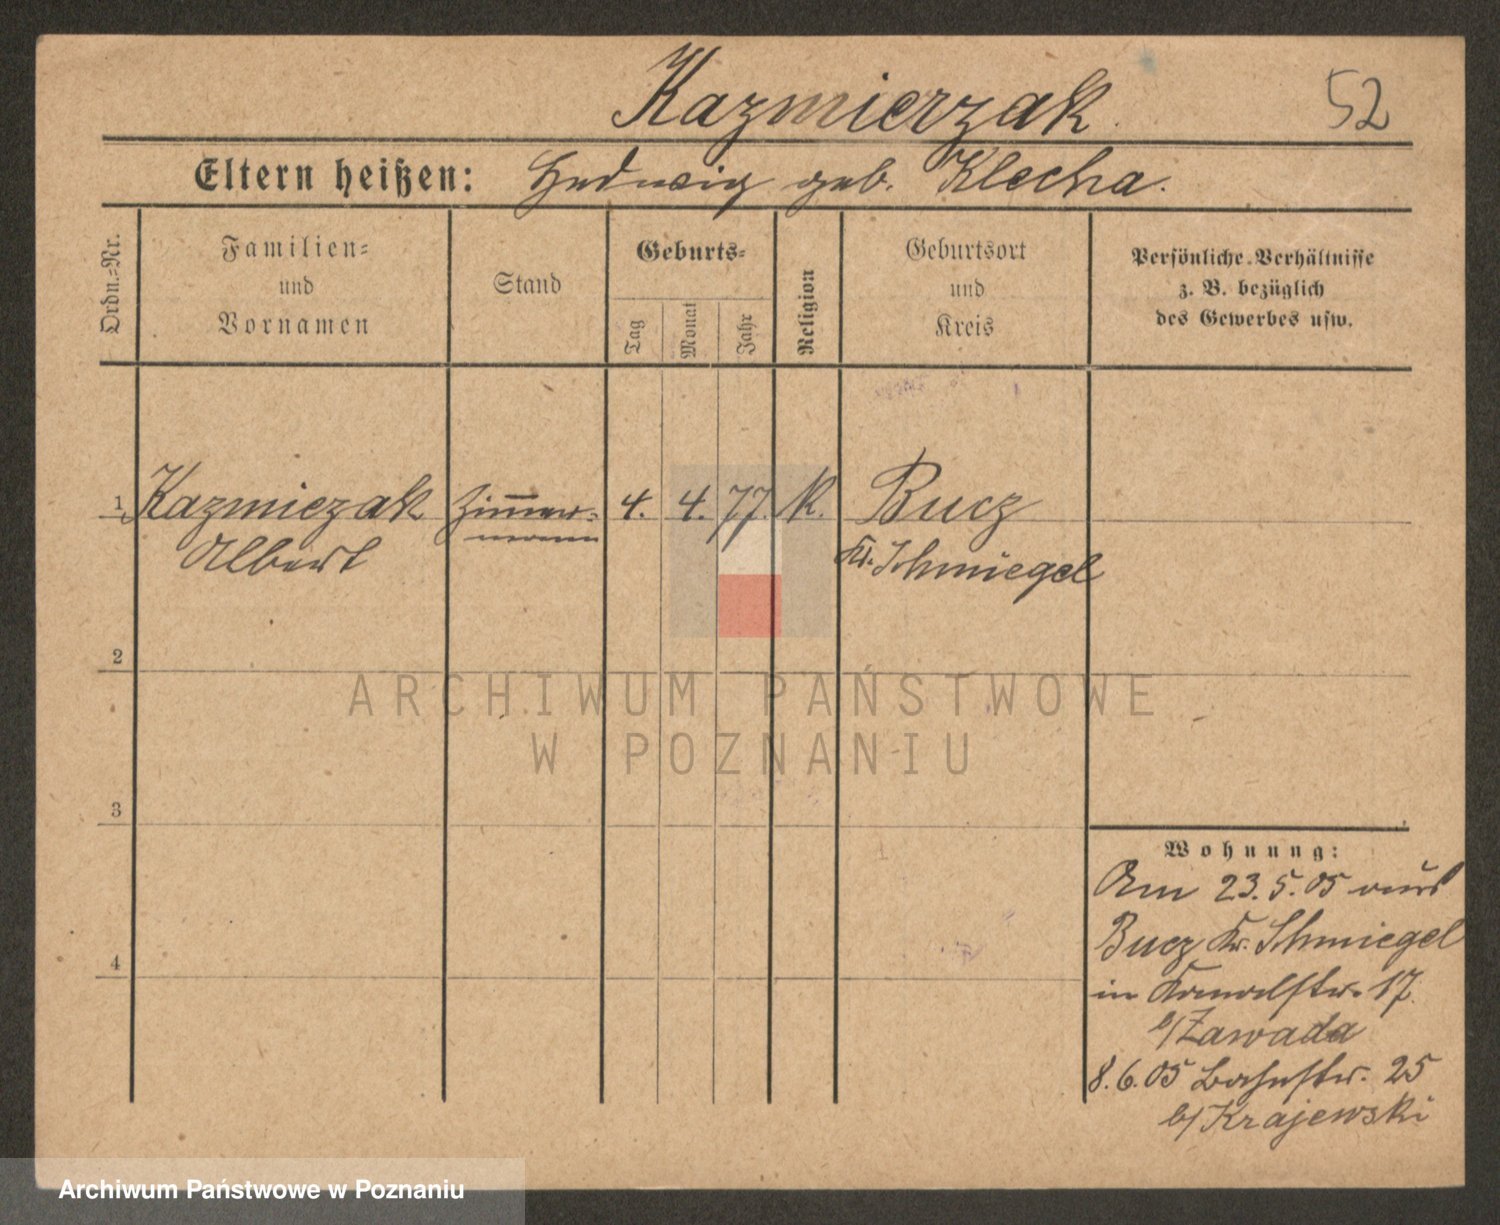 Kazmierzak.
52
Eltern heißen: Hedwig geb. Klecha.
Ordn.=Nr.
Familien=
und
Vornamen
Stand
Geburts=
Tag
Monat
Jahr
Religion
Geburtsort
und
Kreis
Persönliche Verhältnisse
z. B. bezüglich
des Gewerbes usw.
1 Kazmiezak Zimmer= 4. 4. 77. K. Bucz
Albert mann Kr. Schmiegel
2
ARCHIWUM PAŃSTWOWE
W POZNANIU
3
Wohnung:
Am 23.5.05 aus
Bucz Kr. Schmiegel
4
in Kanalstr. 17.
b/Zawada
8.6.05 Bahnstr. 25
b/Krajewski
Archiwum Państwowe w Poznaniu